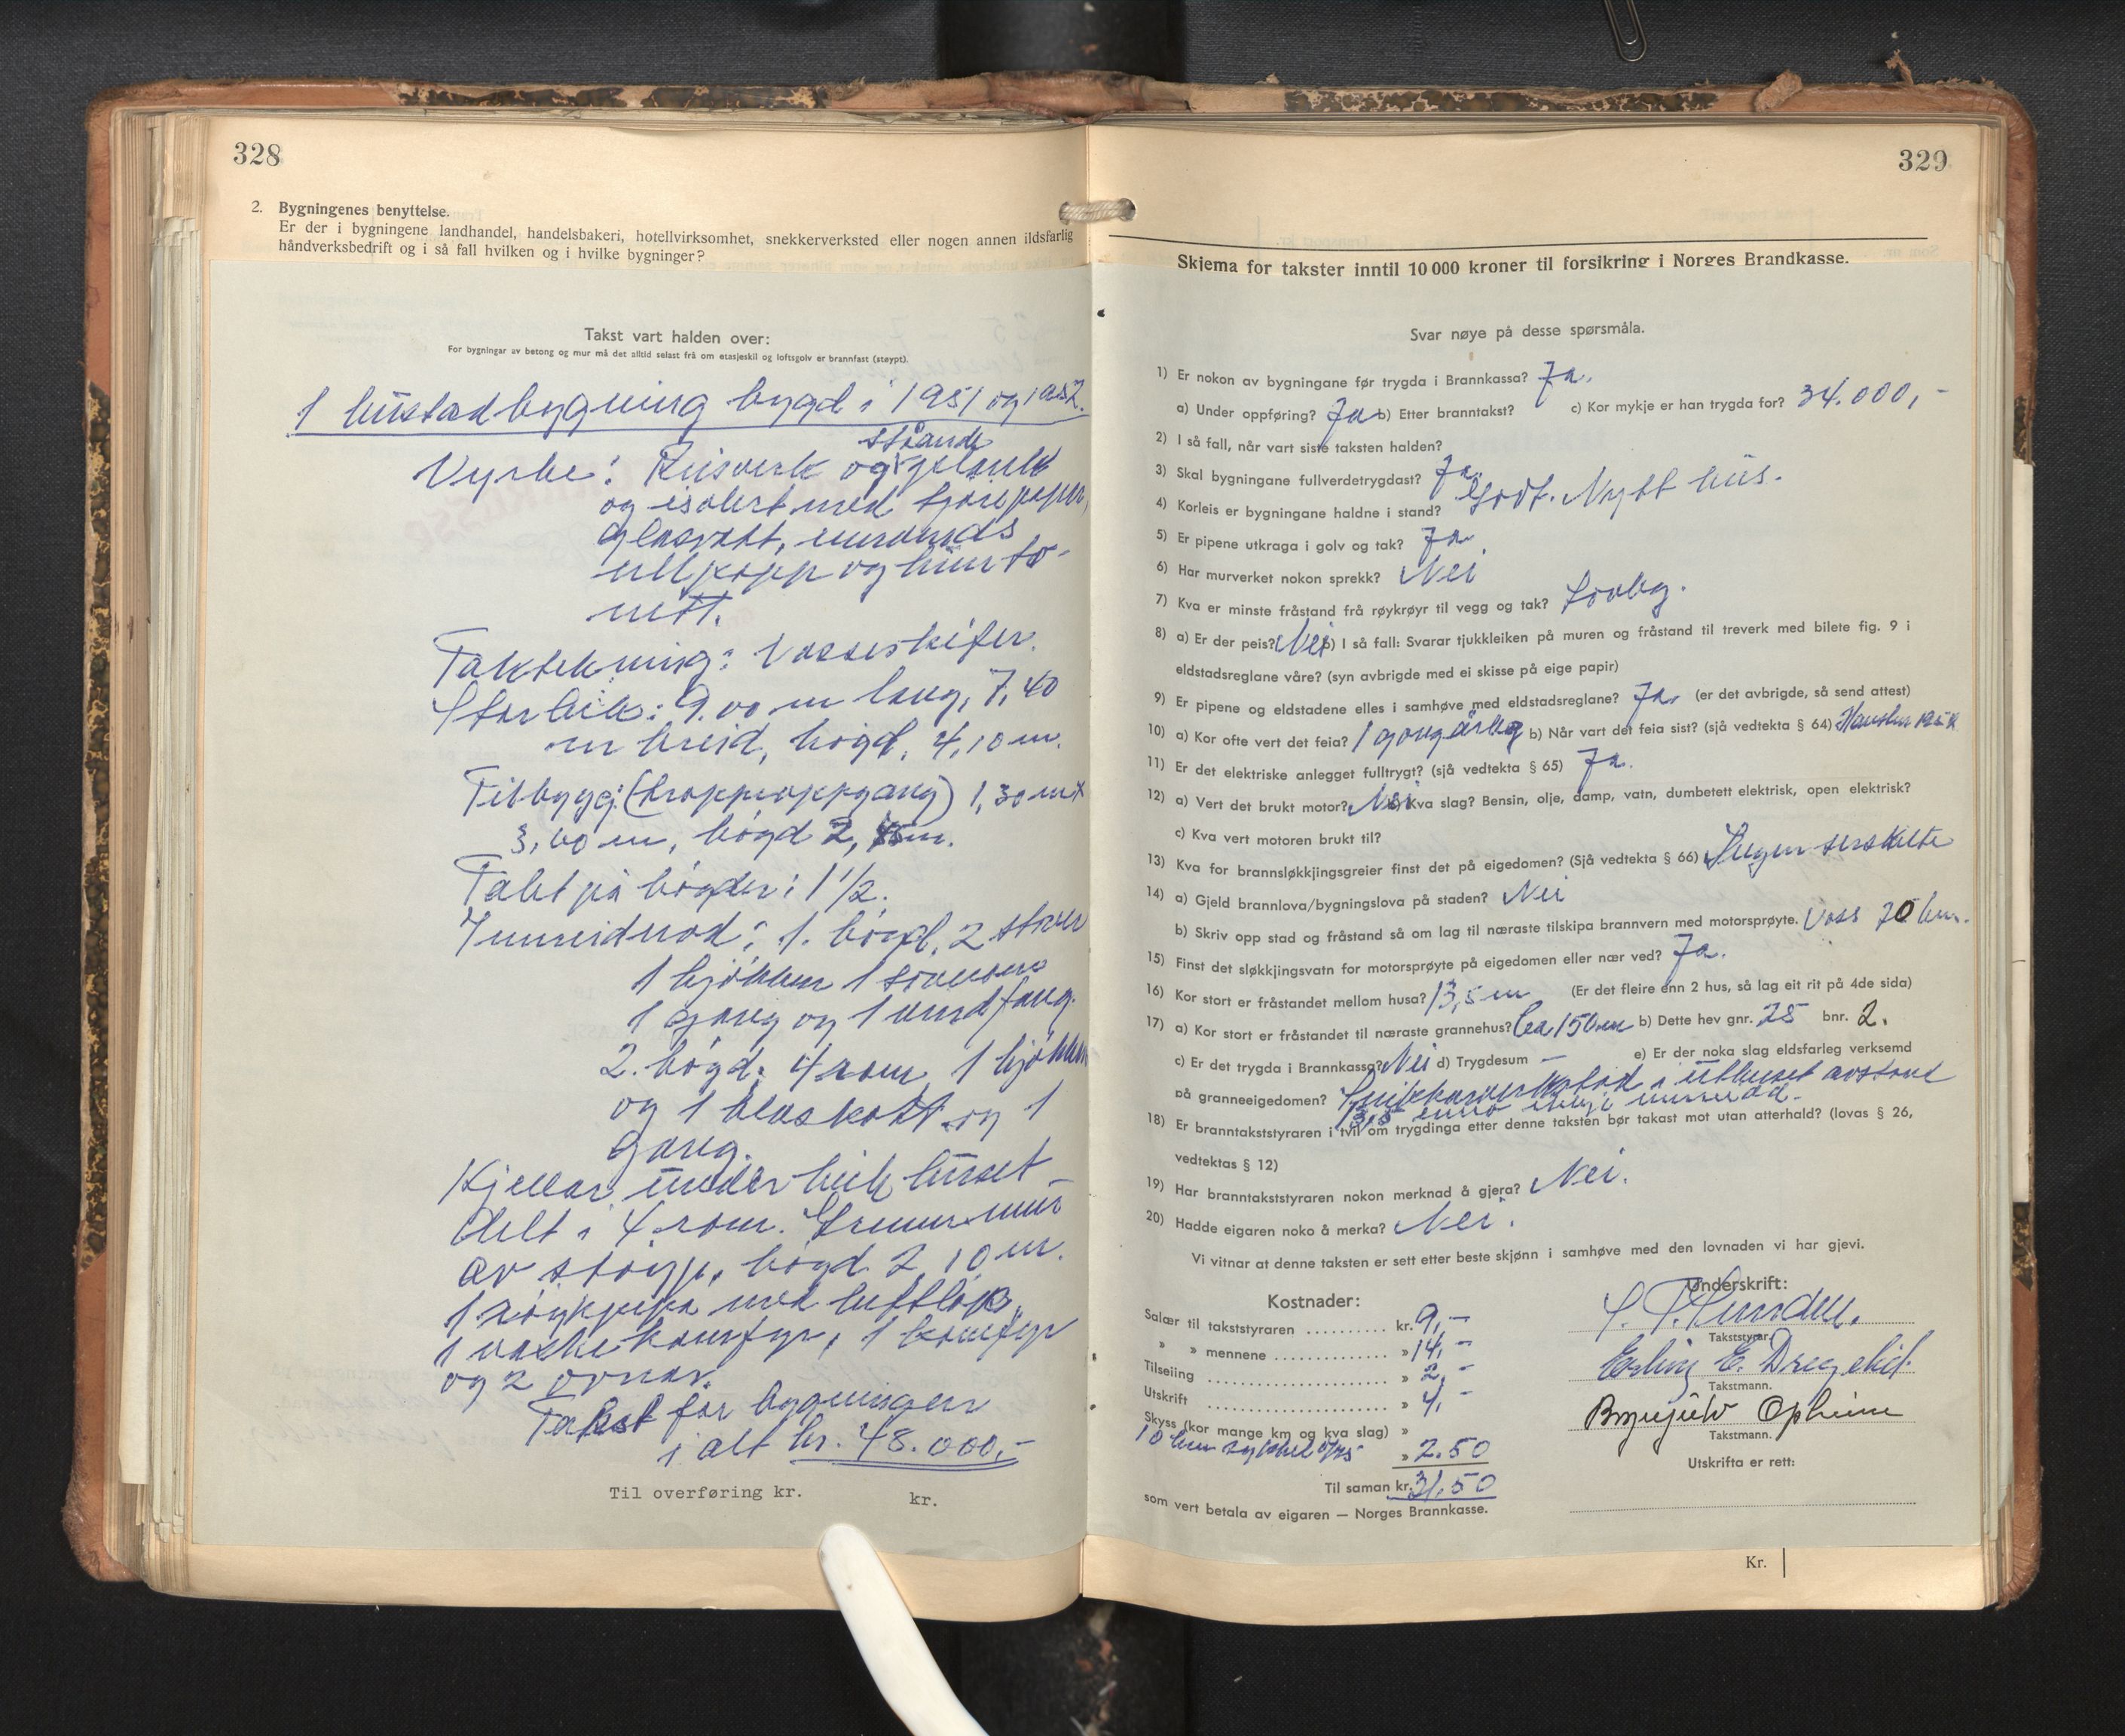 328
2. Bygningenes benyttelse.
Er der i bygningene landhandel, handelsbakeri, hotellvirksomhet, snekkerverksted eller nogen annen ildsfarlig
håndverksbedrift og i så fall hvilken og i hvilke bygninger?
Takst vart halden over:
For bygningar av betong og mur må det alltid selast frå om etasjeskil og loftsgolv er brannfast (støypt).
1 hustadbygning bygd i 1951 og 1952.
stående
Vyrke: Reisverk og plank
og isolert med tjørepapir,
glasvatt, innvendes
ullpapp og hun to-
nitt.
Taktekning: Vosseskifer.
Storleik: 9.00 m lang, 7,40
m breid, høgd. 4,10 m.
Tilbygg: (trappeoppgang) 1,30 m x
3,60 m, høgd 2, m.
Talet på høgder: 1 1/2.
Innreidnad: 1. høgd. 2 stover
1 kjøkken 1 soverom
1 gang og 1 vindfang.
2. høgd: 4 rom, 1 kjøkken
og 1 kleskott og 1
gang.
Kjellar under heile huset
delt i 4 rom. Grunnmur
av støyp, høgd 2,10 m.
1 røykpipa med luftløp,
1 vaskekomfyr, 1 komfyr
og 2 ovnar.
Takst for bygningen
i alt kr. 48.000,-
Til overføring kr. kr.
329
Skjema for takster inntil 10 000 kroner til forsikring i Norges Brandkasse.
Svar nøye på desse spørsmåla.
1) Er nokon av bygningane før trygda i Brannkassa? Ja.
a) Under oppføring? Ja b) Etter branntakst? c) Kor mykje er han trygda for? 34.000,-
2) I så fall, når vart siste taksten halden?
3) Skal bygningane fullverdetrygdast? Ja
4) Korleis er bygningane haldne i stand? Godt. Nytt hus.
5) Er pipene utkraga i golv og tak? Ja
6) Har murverket nokon sprekk? Nei
7) Kva er minste fråstand frå røykrøyr til vegg og tak? Lovleg.
8) a) Er der peis? Nei b) I så fall: Svarar tjukkleiken på muren og fråstand til treverk med bilete fig. 9 i
eldstadsreglane våre? (syn avbrigde med ei skisse på eige papir)
9) Er pipene og eldstadene elles i samhøve med eldstadsreglane? Ja. (er det avbrigde, så send attest)
10) a) Kor ofte vert det feia? 1 gong årleg b) Når vart det feia sist? (sjå vedtekta § 64) Hausten
11) Er det elektriske anlegget fulltrygt? (sjå vedtekta § 65) Ja.
12) a) Vert det brukt motor? Nei b) Kva slag? Bensin, olje, damp, vatn, dumbetett elektrisk, open elektrisk?
c) Kva vert motoren brukt til?
13) Kva for brannsløkkjingsgreier finst det på eigedomen? (Sjå vedtekta § 66) Ingen serskilte
14) a) Gjeld brannlova/bygningslova på staden? Nei
b) Skriv opp stad og fråstand så om lag til næraste tilskipa brannvern med motorsprøyte. Voss 70 km.
15) Finst det sløkkjingsvatn for motorsprøyte på eigedomen eller nær ved? Ja.
16) Kor stort er fråstandet mellom husa? 13,5 m (Er det fleire enn 2 hus, så lag eit rit på 4de sida)
17) a) Kor stort er fråstandet til næraste grannehus? Ca 150 m b) Dette hev gnr. 25 bnr. 2.
c) Er det trygda i Brannkassa? Nei d) Trygdesum — e) Er der noka slag eldsfarleg verksemd
på granneeigedomen? Snikkarverkstad i uthuset avstand
13,5
18) Er branntakststyraren i tvil om trygdinga etter denne taksten bør takast mot utan atterhald? (lovas § 26,
vedtektas § 12)
19) Har branntakststyraren nokon merknad å gjera? Nei.
20) Hadde eigaren noko å merka? Nei.
Vi vitnar at denne taksten er sett etter beste skjønn i samhøve med den lovnaden vi har gjevi.
Underskrift:
Kostnader:
Salær til takststyraren .......... kr. 9,-
» » mennene ............... » 14,-
Tilseiing ........................ » 2,-
Utskrift ........................ » 4,-
Skyss (kor mange km og kva slag) »
10 km sykkel 0/25 » 2.50
Til saman kr. 31.50
som vert betala av eigaren — Norges Brannkasse.
Takststyrar.
Erling E. Dregelid.
Takstmann.
Brynjulv Opheim
Takstmann.
Utskrifta er rett:
Kr.